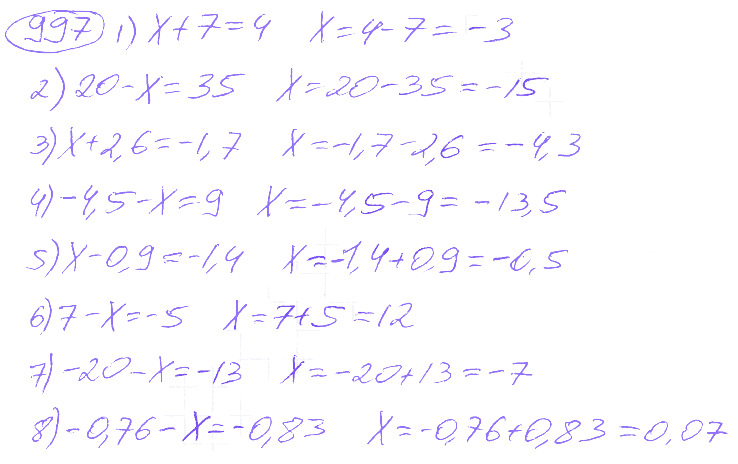 997 1) x+7=4 x=4-7=-3
2) 20-x=35 x=20-35=-15
3) x+2,6=-1,7 x=-1,7-2,6=-4,3
4) -4,5-x=9 x=-4,5-9=-13,5
5) x-0,9=-1,4 x=-1,4+0,9=-0,5
6) 7-x=-5 x=7+5=12
7) -20-x=-13 x=-20+13=-7
8) -0,76-x=-0,83 x=-0,76+0,83=0,07